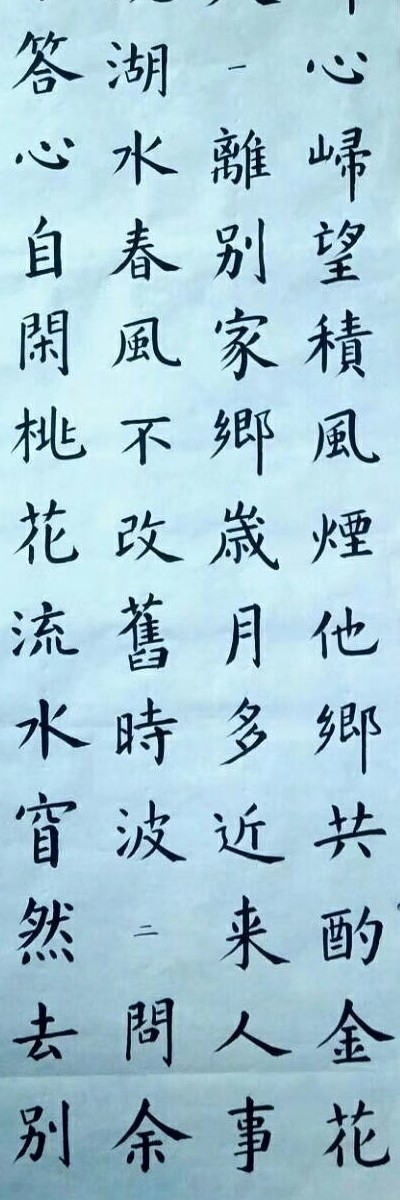 心㱕望積風煙他鄉共酌金花
一離別家鄉歲月多近来人事
湖水春風不改舊時波二問余
答心自閑桃花流水窅然去別